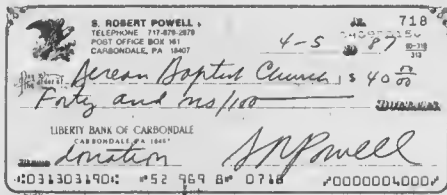 S. ROBERT POWELL
TELEPHONE 717-679-2879
POST OFFICE BOX 161
CARBONDALE, PA 18407
718
4-5 1987
60-318
313
Pay to the order of Berean Baptist Church $ 40 00/00
Forty and no/100 DOLLARS
LIBERTY BANK OF CARBONDALE
CARBONDALE, PA 18407
donation SRPowell
⑆031303190⑆ ⑈52 969 8⑈ 0718 ⑈0000004000⑈